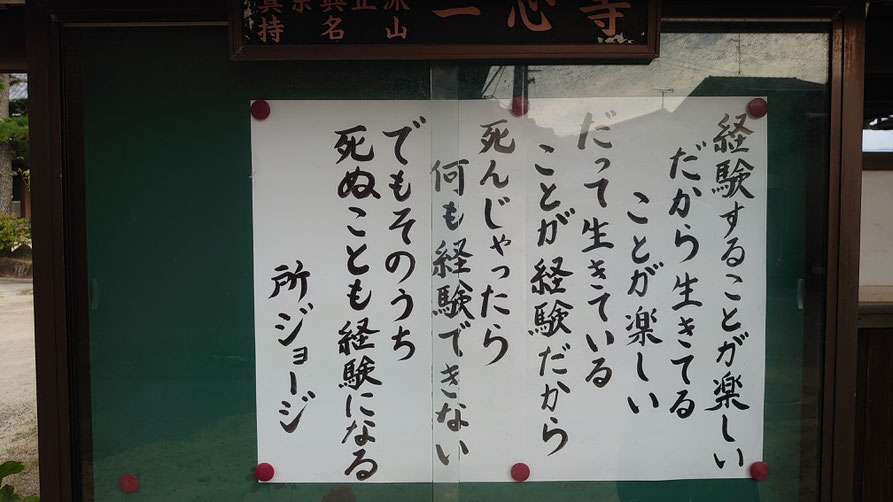 一心寺
経験することが楽しい
だから生きてる
ことが楽しい
だって生きている
ことが経験だから
死んじゃったら
何も経験できない
でもそのうち
死ぬことも経験になる
所ジョージ